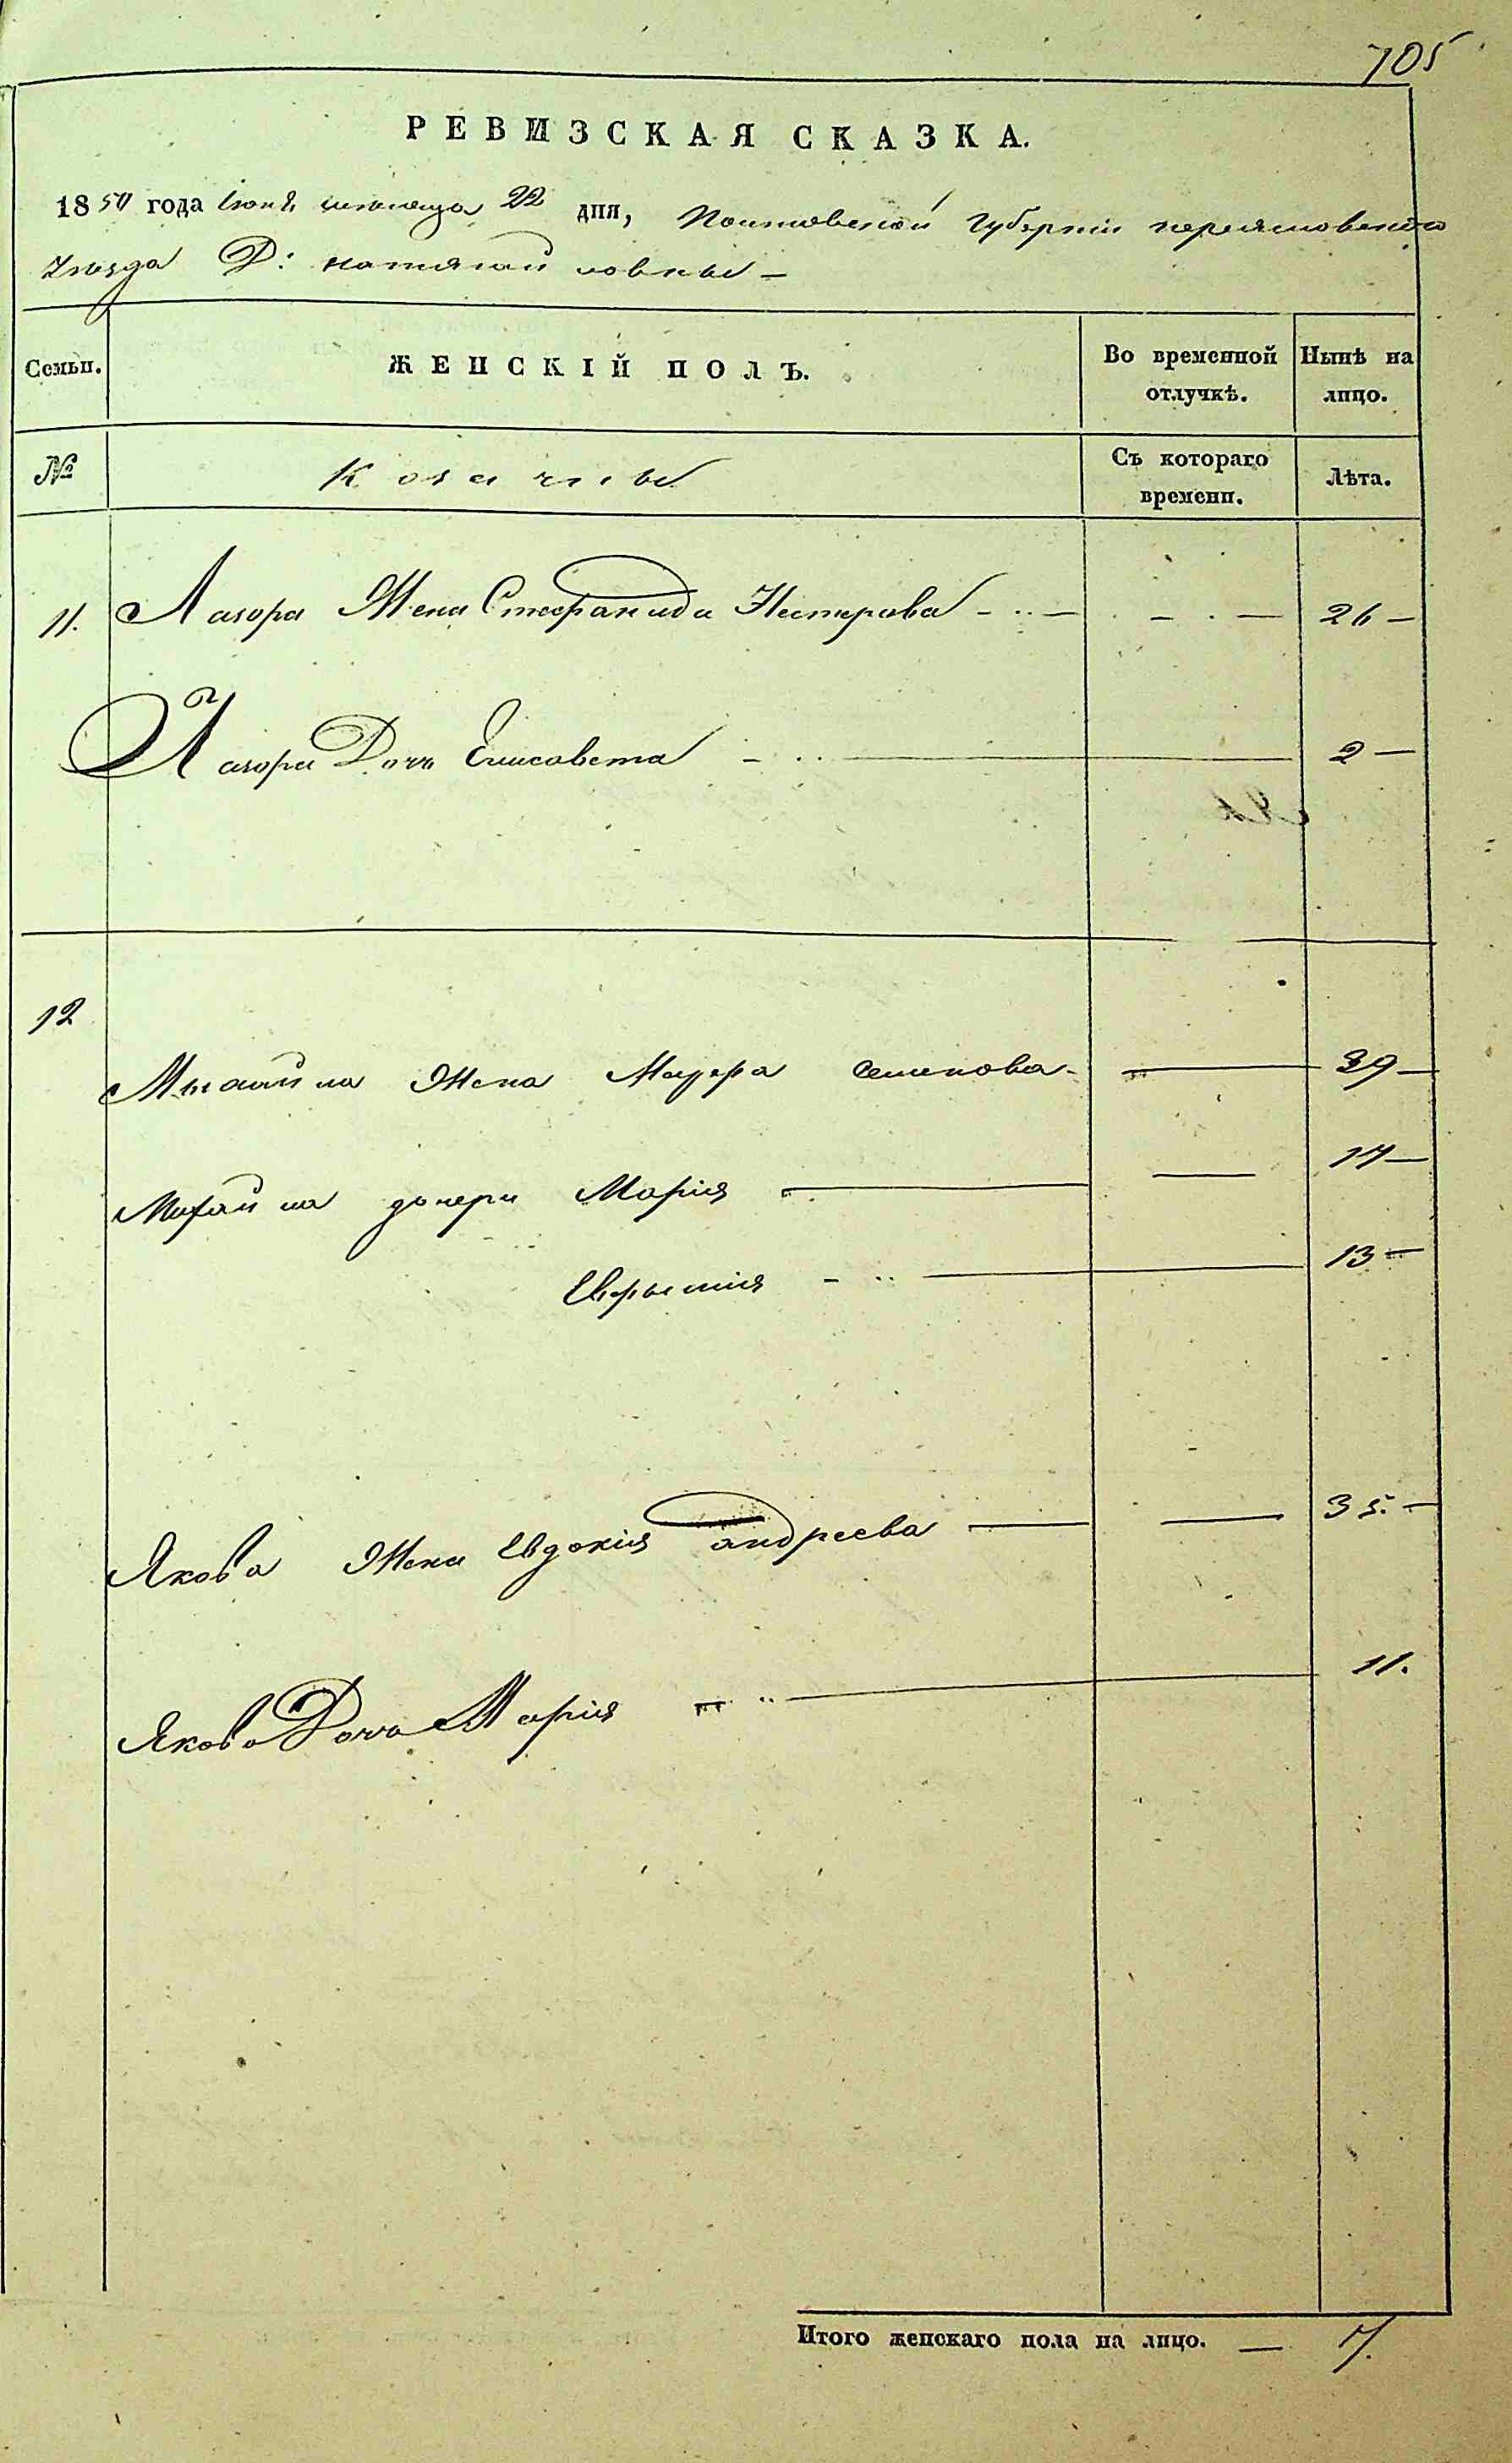 705
РЕВИЗСКАЯ СКАЗКА.
1850 года Июня месяца 22 дня, Полтавской Губернии переяславского
Уезда Д:
Семьи.
ЖЕНСКІЙ ПОЛЪ.
Во временной отлучкѣ.
Нынѣ на лицо.
№
Козачки
Съ котораго времени.
Лѣта.
11. Лазора Жена Стефанида Нестерова 26
Лазора Дочь Елисавета 2
12
Михайла Жена Мавра Семенова 39
Михайла дочери Марія 17
Евфимия 13
Якова Жена Евдокія андреева 35.
Якова Дочь Марія 11.
Итого женскаго пола на лицо. — 7.